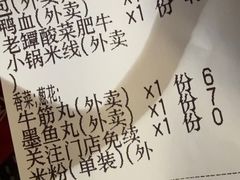 鸭血(外卖) x1 份
老罈酸菜肥牛
小锅米线(外卖
牛筋丸(外卖) x1 份 6
墨鱼丸(外卖) x1 份 7
关注门店免续 x1 份 0
米粉(单装)(外